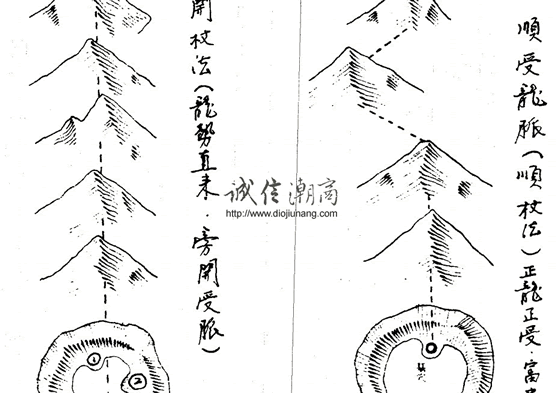 順受龍脈(順杖法)正龍正受．富
開杖法(龍勢直来．旁開受脈)
诚信潮商
http://www.diojiunang.com
①
②
穴